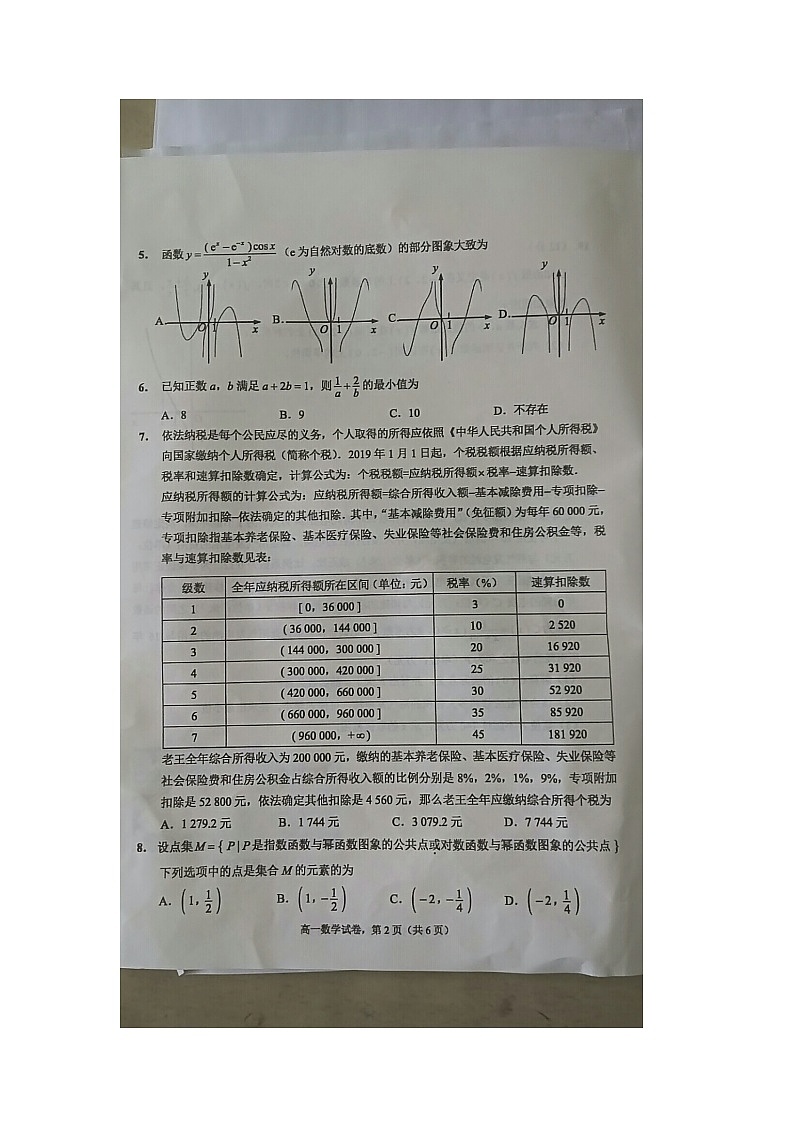 5. 函数 y = (eˣ－e⁻ˣ)cos x / 1－x² （e 为自然对数的底数）的部分图象大致为
A. y O 1 x B. y O 1 x C. y O 1 x D. y O 1 x
6. 已知正数 a，b 满足 a + 2b = 1，则 1/a + 2/b 的最小值为
A. 8 B. 9 C. 10 D. 不存在
7. 依法纳税是每个公民应尽的义务，个人取得的所得应依照《中华人民共和国个人所得税》
向国家缴纳个人所得税（简称个税）. 2019 年 1 月 1 日起，个税税额根据应纳税所得额、
税率和速算扣除数确定，计算公式为：个税税额=应纳税所得额×税率–速算扣除数.
应纳税所得额的计算公式为：应纳税所得额=综合所得收入额–基本减除费用–专项扣除–
专项附加扣除–依法确定的其他扣除. 其中，“基本减除费用”（免征额）为每年 60 000 元，
专项扣除指基本养老保险、基本医疗保险、失业保险等社会保险费和住房公积金等，税
率与速算扣除数见表：
级数 全年应纳税所得额所在区间（单位：元） 税率（%） 速算扣除数
1 [ 0，36 000 ] 3 0
2 ( 36 000，144 000 ] 10 2 520
3 ( 144 000，300 000 ] 20 16 920
4 ( 300 000，420 000 ] 25 31 920
5 ( 420 000，660 000 ] 30 52 920
6 ( 660 000，960 000 ] 35 85 920
7 ( 960 000，+∞) 45 181 920
老王全年综合所得收入为 200 000 元，缴纳的基本养老保险、基本医疗保险、失业保险等
社会保险费和住房公积金占综合所得收入额的比例分别是 8%，2%，1%，9%，专项附加
扣除是 52 800 元，依法确定其他扣除是 4 560 元，那么老王全年应缴纳综合所得个税为
A. 1 279.2 元 B. 1 744 元 C. 3 079.2 元 D. 7 744 元
8. 设点集 M = { P | P 是指数函数与幂函数图象的公共点或对数函数与幂函数图象的公共点 }
下列选项中的点是集合 M 的元素的为
A. (1, 1/2) B. (1, －1/2) C. (－2, －1/4) D. (－2, 1/4)
高一数学试卷，第 2 页（共 6 页）